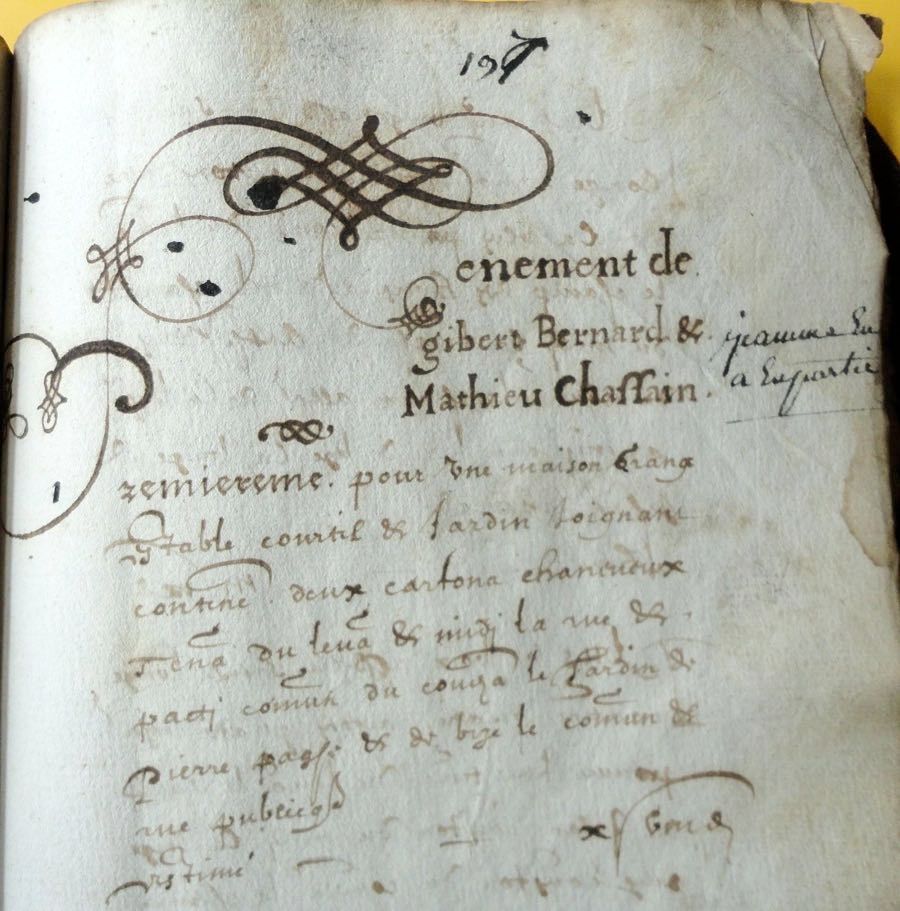 197
enement de
gibert Bernard &
Mathieu Chassain.
jeanne En
a Enpartie
1
remiereme. pour vne maison Grang
Estable courtil & Jardin Joignant
contine. deux cartona chaneueux
Tena du leua & midj la rue de
pactj comun du couga le Jardin de
Pierre pages & de bize le comun &
rue publicq
Estimé